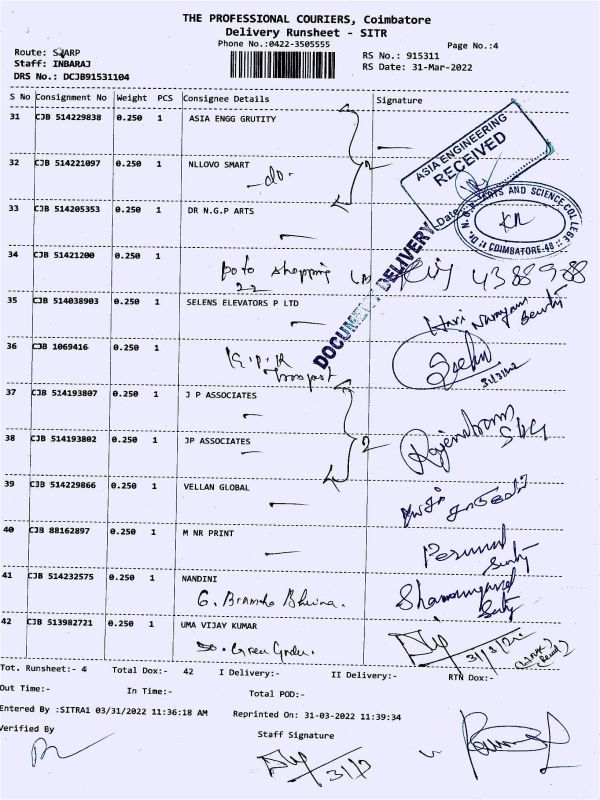 THE PROFESSIONAL COURIERS, Coimbatore
Delivery Runsheet - SITR
Phone No.:0422-3505555
Page No.:4
Route: SHARP
Staff: INBARAJ
DRS No.: DCJB91531104
RS No.: 915311
RS Date: 31-Mar-2022
S No Consignment No Weight PCS Consignee Details Signature
31 CJB 514229838 0.250 1 ASIA ENGG GRUTITY
ASIA ENGINEERING
RECEIVED
Date
32 CJB 514221097 0.250 1 NLLOVO SMART
-do-
2
33 CJB 514205353 0.250 1 DR N.G.P ARTS
Dr. N.G.P. ARTS AND SCIENCE COLLEGE
COIMBATORE-48
KR
DOCUMENT DELIVERY
34 CJB 51421200 0.250 1
shopping
22
4388988
35 CJB 514038903 0.250 1 SELENS ELEVATORS P LTD
Hari Narayanan
36 CJB 1069416 0.250 1
K.P.R
Transport
37 CJB 514193807 0.250 1 J P ASSOCIATES
2
38 CJB 514193802 0.250 1 JP ASSOCIATES
Rajendran
39 CJB 514229866 0.250 1 VELLAN GLOBAL
40 CJB 88162897 0.250 1 M NR PRINT
Perumal
41 CJB 514232575 0.250 1 NANDINI
G.
Shanmugavel
42 CJB 513982721 0.250 1 UMA VIJAY KUMAR
Green
31/3/22
Tot. Runsheet:- 4 Total Dox:- 42 I Delivery:- II Delivery:- RTN Dox:-
Out Time:- In Time:- Total POD:-
Entered By :SITRA1 03/31/2022 11:36:18 AM Reprinted On: 31-03-2022 11:39:34
Verified By
Staff Signature
31/3